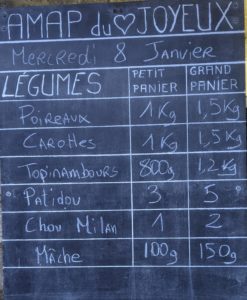 AMAP du ♡ JOYEUX
Mercredi 8 Janvier
LÉGUMES PETIT PANIER GRAND PANIER
Poireaux 1Kg 1,5Kg
Carottes 1Kg 1,5Kg
Topinambours 800g 1,2Kg
Patidou 3 5
Chou Milan 1 2
Mâche 100g 150g